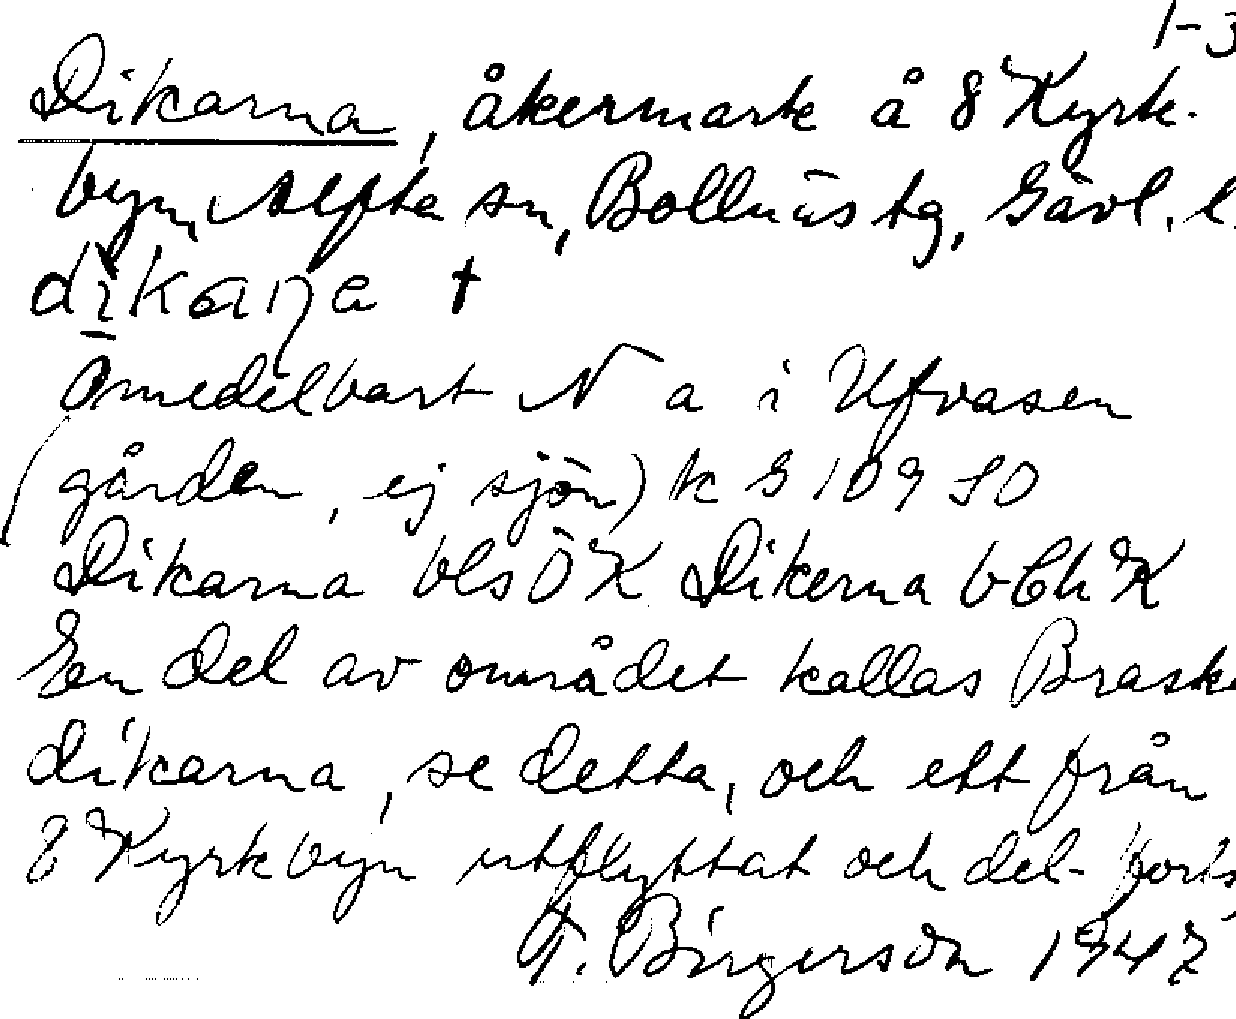 1-3
Dikarna, åkermark å 8 Kyrk-
byn, Alfta sn, Bollnäs tg, Gävl. l.
dikaŋa †
Omedelbart N a i Ulvasen
(gården, ej sjön) k G 109 SO
Dikarna bls ÖK Dikerna b Ch K
En del av området kallas Braske
dikarna, se detta, och ett från
8 Kyrkbyn utflyttat och del- forts
T. Birgerson 1947